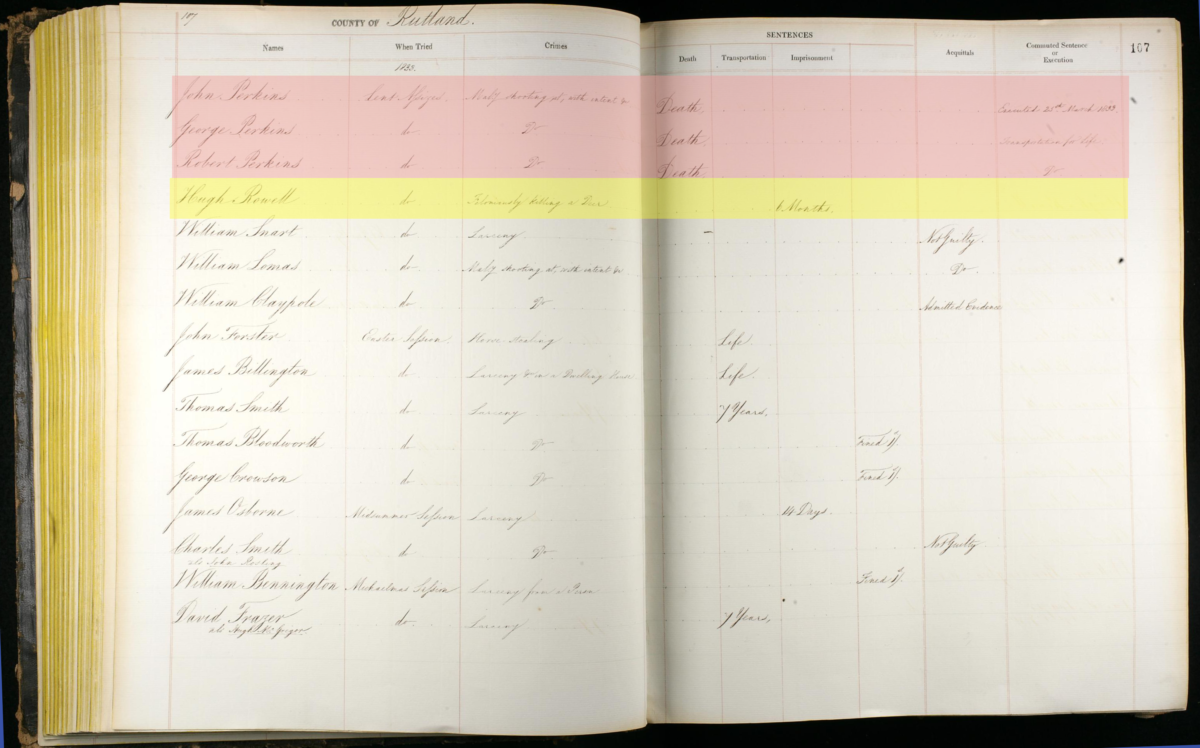 107
COUNTY OF Rutland.
SENTENCES
Names When Tried Crimes Death Transportation Imprisonment Acquittals Commuted Sentence or Execution 107
1833.
John Perkins Lent Assizes Mal.y shooting at, with intent &c Death Executed 25th March 1833
George Perkins do Do Death Transportation for Life
Robert Perkins do Do Death Do
Hugh Rowell do Feloniously killing a Deer Months.
William Snart do Larceny Not Guilty.
William Lomas do Mal.y shooting at, with intent &c Do
William Claypole do Do Admitted Evidence
John Forster Easter Session Horse stealing Life
James Bellington do Larceny &c in a Dwelling House Life
Thomas Smith do Larceny 7 Years.
Thomas Bloodworth do Do Fined 1/.
George Crowson do Do Fined 1/.
James Osborne Midsummer Session Larceny 14 Days.
Charles Smith do Do Not Guilty
als John
William Bennington Michaelmas Session Larceny from a Person Fined 1/.
David Frazer do Larceny 7 Years.
als Hugh